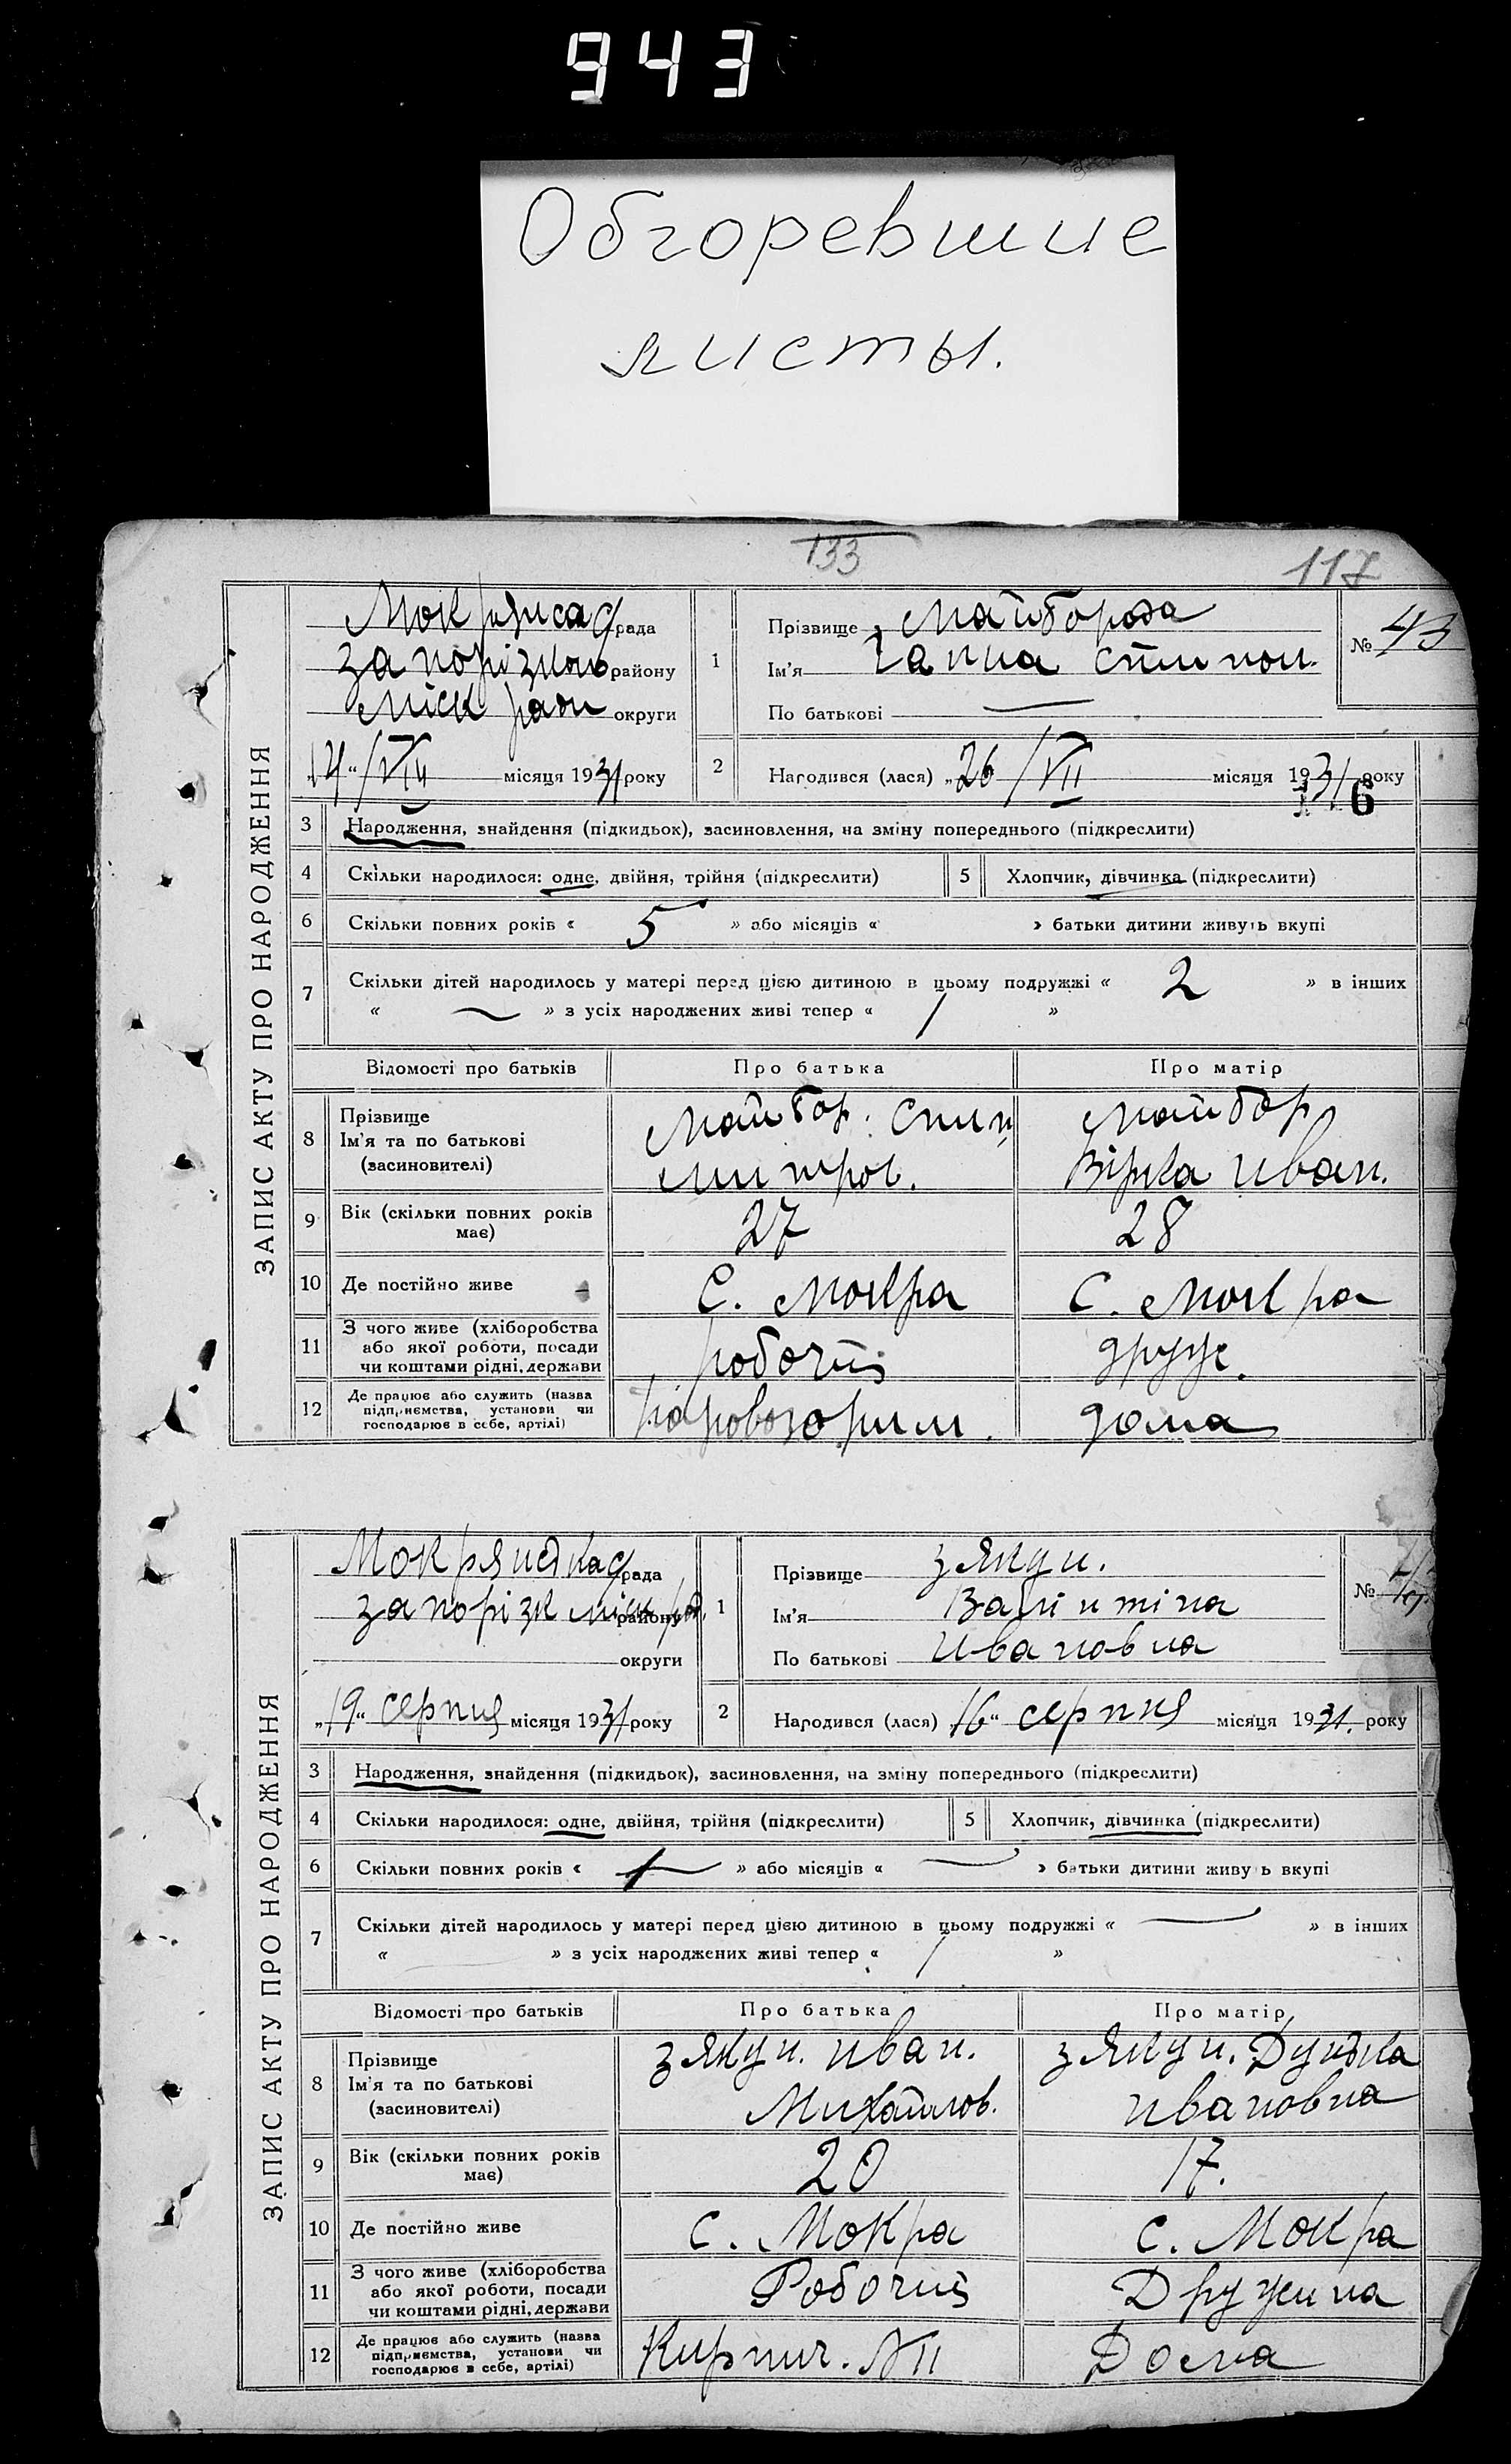 943
Обгоревшие
листы.
133
117
ЗАПИС АКТУ ПРО НАРОДЖЕННЯ
рада
району
Міск ради округи
"14" VIII місяця 1931 року
1
Прізвище Майборода
Ім'я Ганна
По батькові —
№ 43
2
Народився (лася) "26 / VII місяця 1931 року
6
3 Народження, знайдення (підкидьок), засиновлення, на зміну попереднього (підкреслити)
4 Скільки народилося: одне, двійня, трійня (підкреслити)
5 Хлопчик, дівчинка (підкреслити)
6 Скільки повних років « 5 » або місяців « » батьки дитини живуть вкупі
7 Скільки дітей народилось у матері перед цією дитиною в цьому подружжі « 2 » в інших
« — » з усіх народжених живі тепер « 1 »
Відомості про батьків Про батька Про матір
8 Прізвище
Ім'я та по батькові
(засиновителі)
Майбор.
Майбор
Вірка Иван.
9 Вік (скільки повних років
має)
27
28
10 Де постійно живе С. Мокра С. Мокра
11 З чого живе (хліборобства
або якої роботи, посади
чи коштами рідні, держави
робочий
друж.
12 Де працює або служить (назва
підприємства, установи чи
господарює в себе, артілі)
дома
ЗАПИС АКТУ ПРО НАРОДЖЕННЯ
рада
Запорізк міск рад. району
округи
"19" серпня місяця 1931 року
1
Прізвище Зякун.
Ім'я Валінтіна
По батькові Ивановна
№
2
Народився (лася) 16" серпня місяця 1931. року
3 Народження, знайдення (підкидьок), засиновлення, на зміну попереднього (підкреслити)
4 Скільки народилося: одне, двійня, трійня (підкреслити)
5 Хлопчик, дівчинка (підкреслити)
6 Скільки повних років « 1 » або місяців « — » батьки дитини живуть вкупі
7 Скільки дітей народилось у матері перед цією дитиною в цьому подружжі « — » в інших
« » з усіх народжених живі тепер « 1 »
Відомості про батьків Про батька Про матір
8 Прізвище
Ім'я та по батькові
(засиновителі)
Зякун. Иван.
Михайлов.
Зякун. Дунька
Ивановна
9 Вік (скільки повних років
має)
20
17.
10 Де постійно живе С. Мокра С. Мокра
11 З чого живе (хліборобства
або якої роботи, посади
чи коштами рідні, держави
Робочий
Дружина
12 Де працює або служить (назва
підприємства, установи чи
господарює в себе, артілі)
Кирпич. №11
Дома